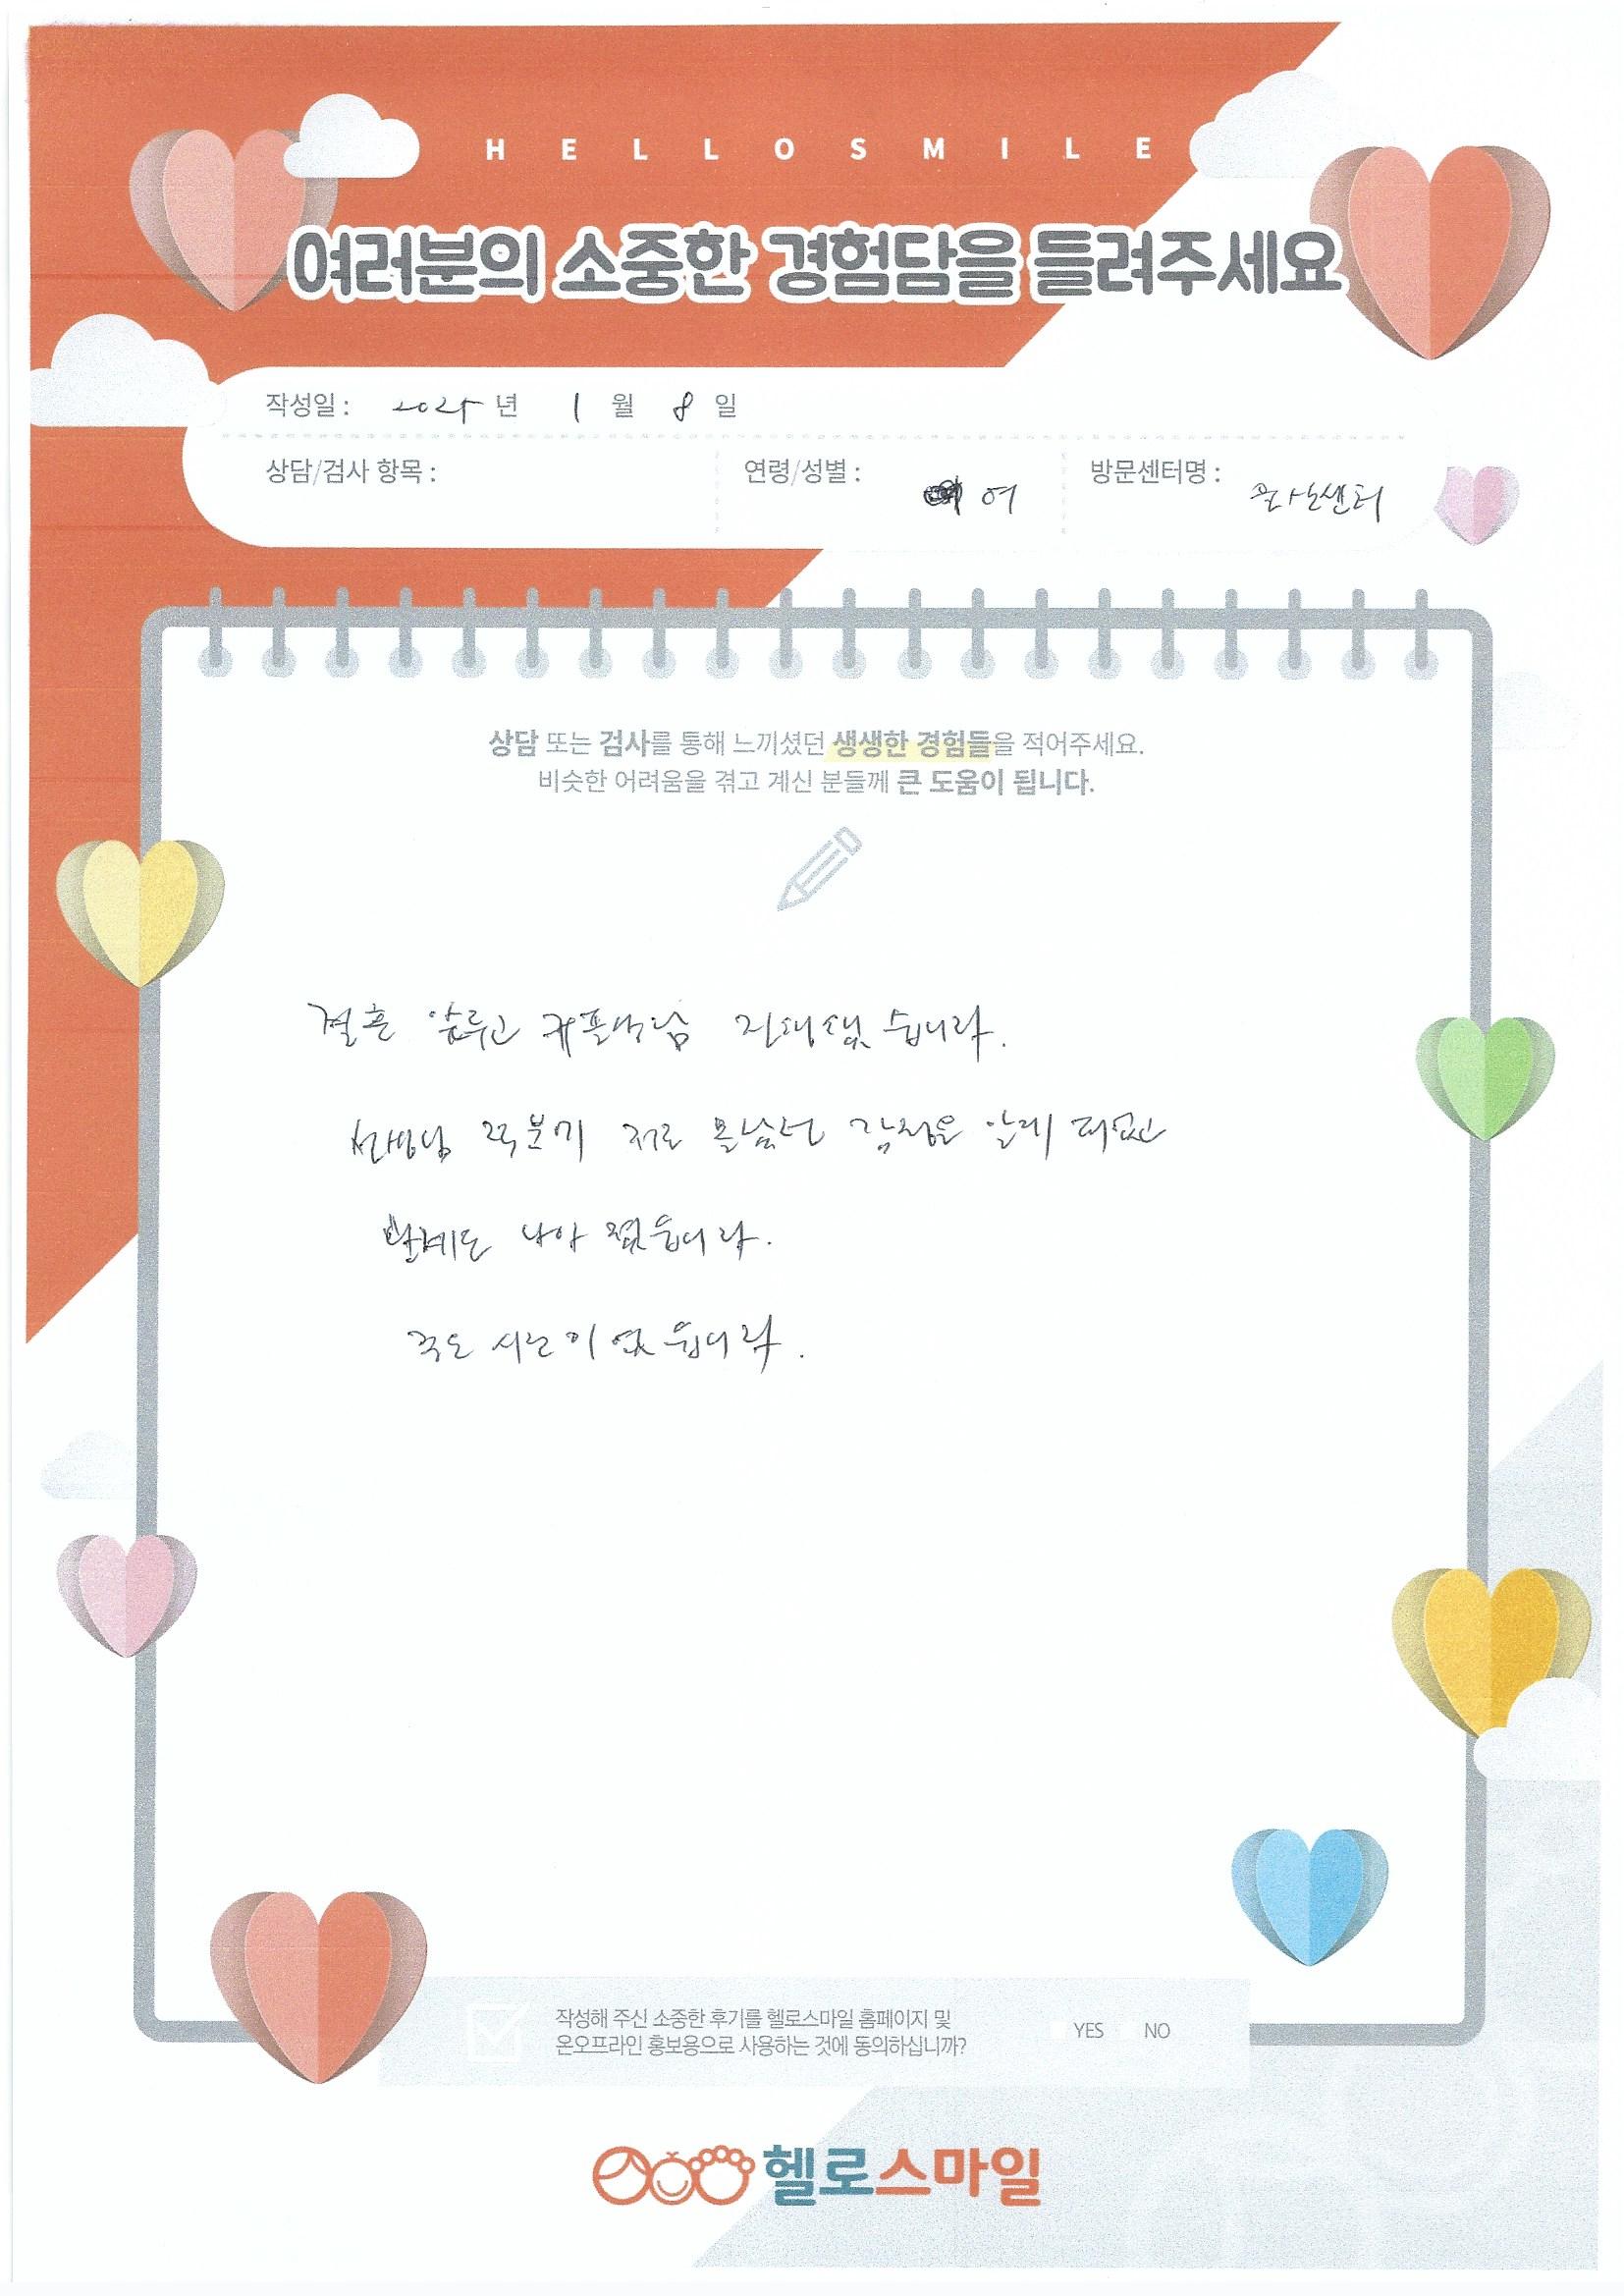 HELLOSMILE
여러분의 소중한 경험담을 들려주세요
작성일 : 2025 년 1 월 8 일
상담/검사 항목 :
연령/성별 : 여
방문센터명 : 센터
상담 또는 검사를 통해 느끼셨던 생생한 경험들을 적어주세요.
비슷한 어려움을 겪고 계신 분들께 큰 도움이 됩니다.
결혼 앞두고 커플상담 진행했습니다.
선생님 덕분에 서로 몰랐던 감정을 알게 되었고
관계도 나아졌습니다.
좋은 시간이었습니다.
작성해 주신 소중한 후기를 헬로스마일 홈페이지 및
온오프라인 홍보용으로 사용하는 것에 동의하십니까?
YES NO
헬로스마일